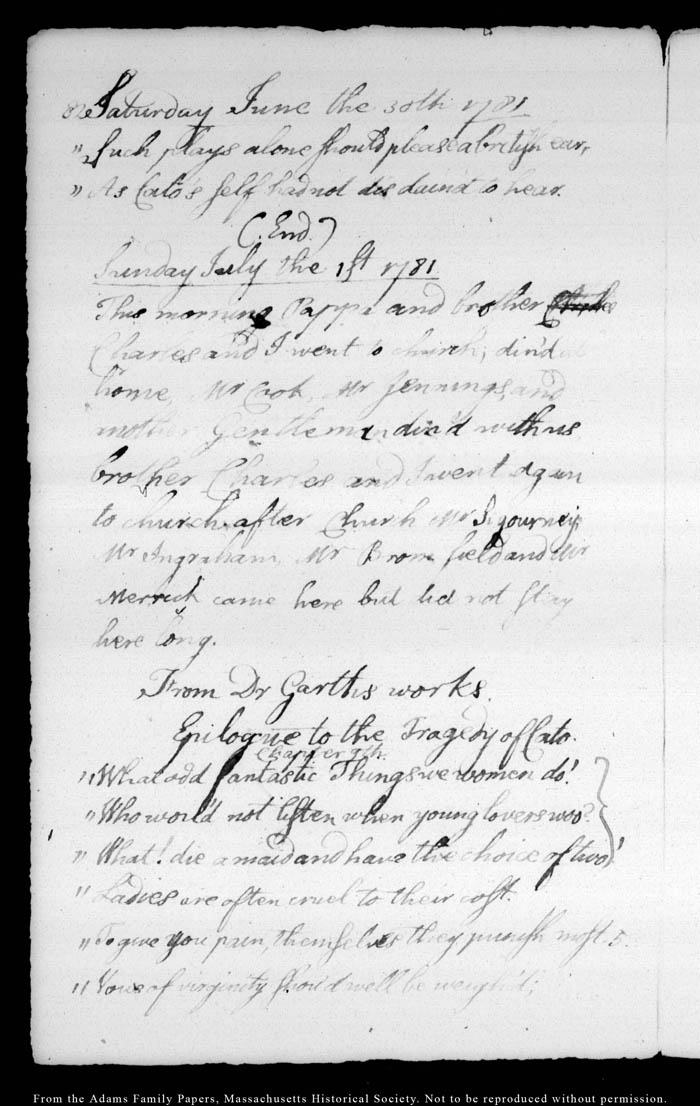 82 Saturday June the 30th 1781
" Such plays alone should please a british ear,
" As Cato's self had not disdain'd to hear.
(End.)
Sunday July the 1st 1781
This morning Pappa and brother
Charles and I went to church; din'd at
home, Mr Cook, Mr Jennings, and
another Gentleman din'd with us
brother Charles and I went again
to church. after Church Mr Sigourney,
Mr Ingraham, Mr Bromfield and Mr
Merrick came here but did not stay
here long.
From Dr Garths works.
Epilogue to the Tragedy of Cato.
Chapter 9th.
" What odd fantastic Things we women do!
" Who would not listen when young lovers woo?
" What! die a maid and have the choice of two!
" Ladies are often cruel to their cost.
" To give you pain, themselves they punish most. 5
" Vows of virginity should well be weigh'd;
From the Adams Family Papers, Massachusetts Historical Society. Not to be reproduced without permission.